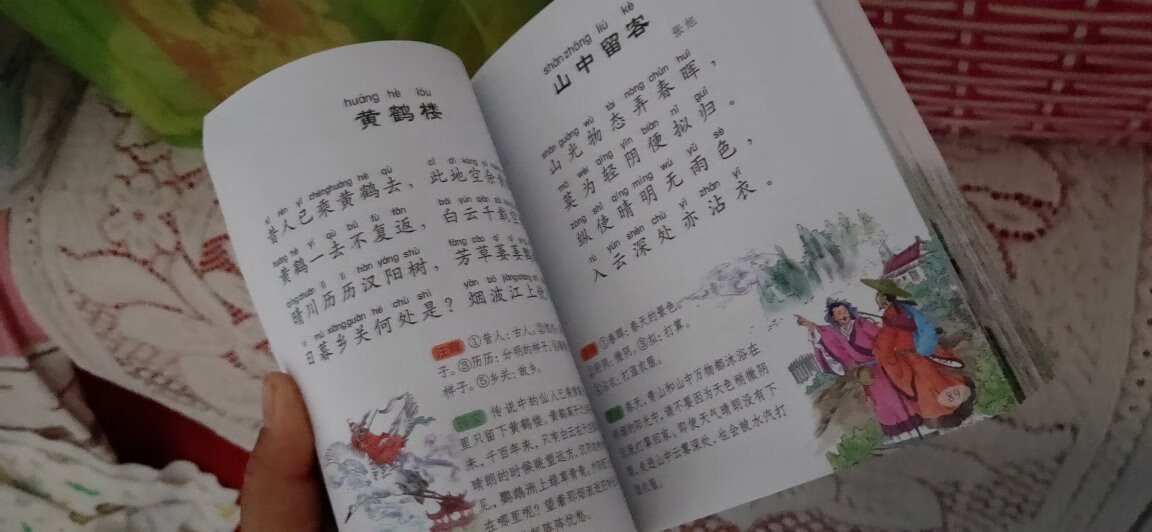 huáng hè lóu
黄鹤楼
xī rén yǐ chénghuáng hè qù
昔人已乘黄鹤去，此地空余
huáng hè yí qù bú fù fǎn
黄鹤一去不复返，白云千载空
qíngchuān lì lì hàn yáng shù
晴川历历汉阳树，芳草萋萋鹦
rì mù xiāngguān hé chù shì
日暮乡关何处是？烟波江上使
注释 ①昔人：古人。
子。③历历：分明的样子。
样子。⑤乡关：故乡。
传说中的仙人已乘黄
里只留下黄鹤楼。黄鹤
来，千百年来，只有白云
晴朗的时候眺望远方，汉阳
见，鹦鹉洲上绿草青青，
在哪里呢？望着那烟波
shān zhōng liú kè
山中留客
张旭
shān guāng wù tài nòng chūn huī
山光物态弄春晖，
mò wèi qīng yīn biàn nǐ guī
莫为轻阴便拟归。
zòng shǐ qíng míng wú yǔ sè
纵使晴明无雨色，
rù yún shēn chù yì zhān yī
入云深处亦沾衣。
①春晖：春天的景色。
②轻阴：微阴。③拟：打算。
④沾衣：打湿衣服。
春天，青山和山中万物都沐浴在
的阳光中，请不要因为天色稍微阴
打算回家。即使天气晴朗没有下
雨，走进山中云雾深处，也会被水汽打
湿衣服。
89